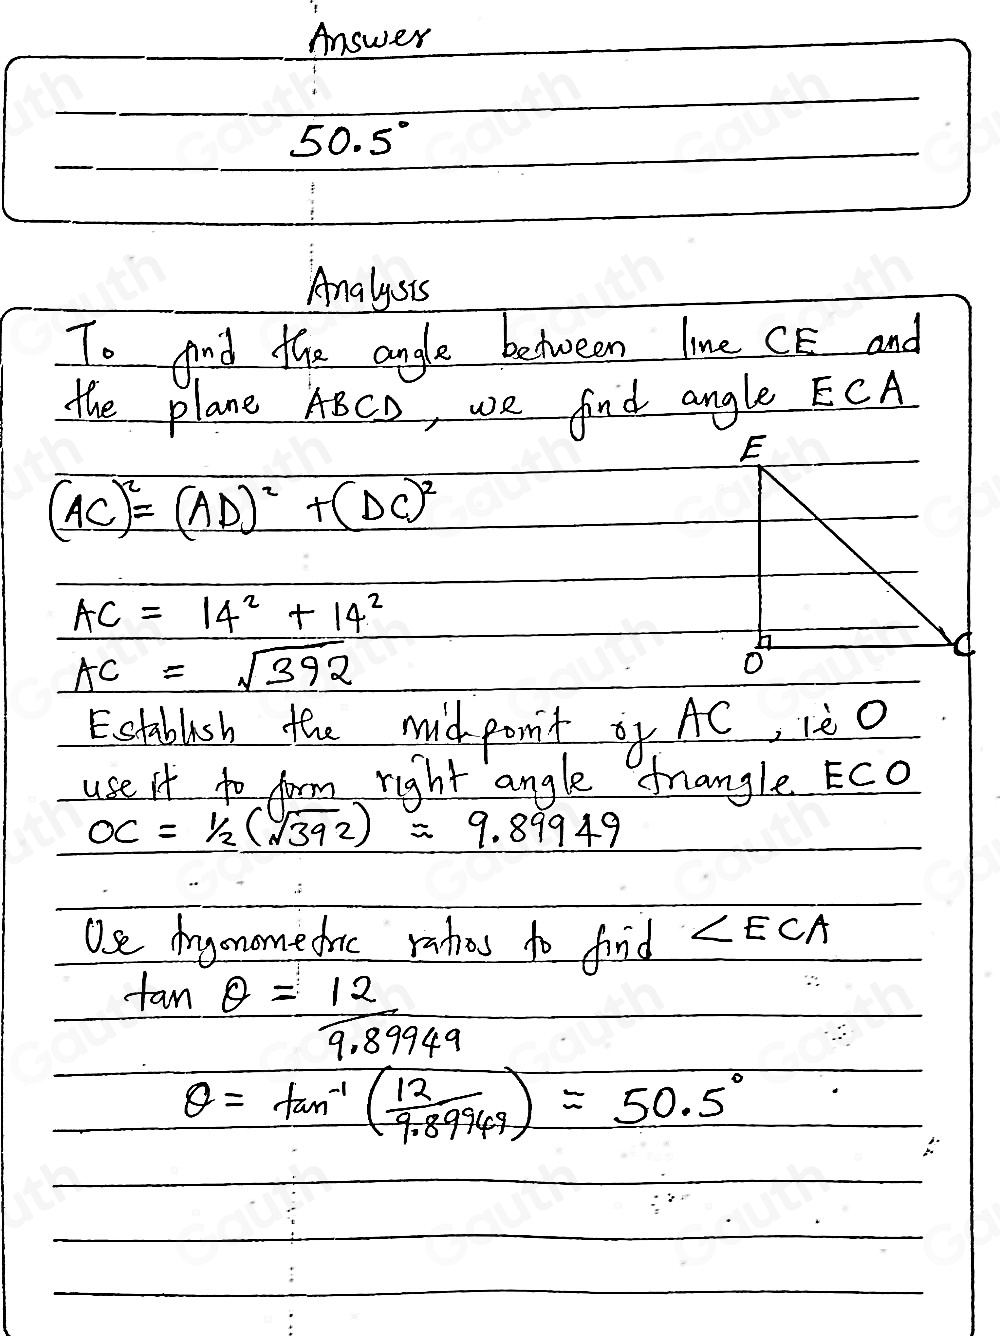 Answer
50.5°
Analysis
To find the angle between line CE and
the plane ABCD, we find angle ECA
E
(AC)² = (AD)² + (DC)²
AC = 14² + 14²
O C
AC = √392
Establish the midpoint of AC, ie O
use it to form right angle triangle ECO
OC = ½(√392) ≈ 9.89949
Use trigonometric ratios to find <ECA
tan θ = 12
9.89949
θ = tan⁻¹ (12/9.89949) ≈ 50.5°
Gauth